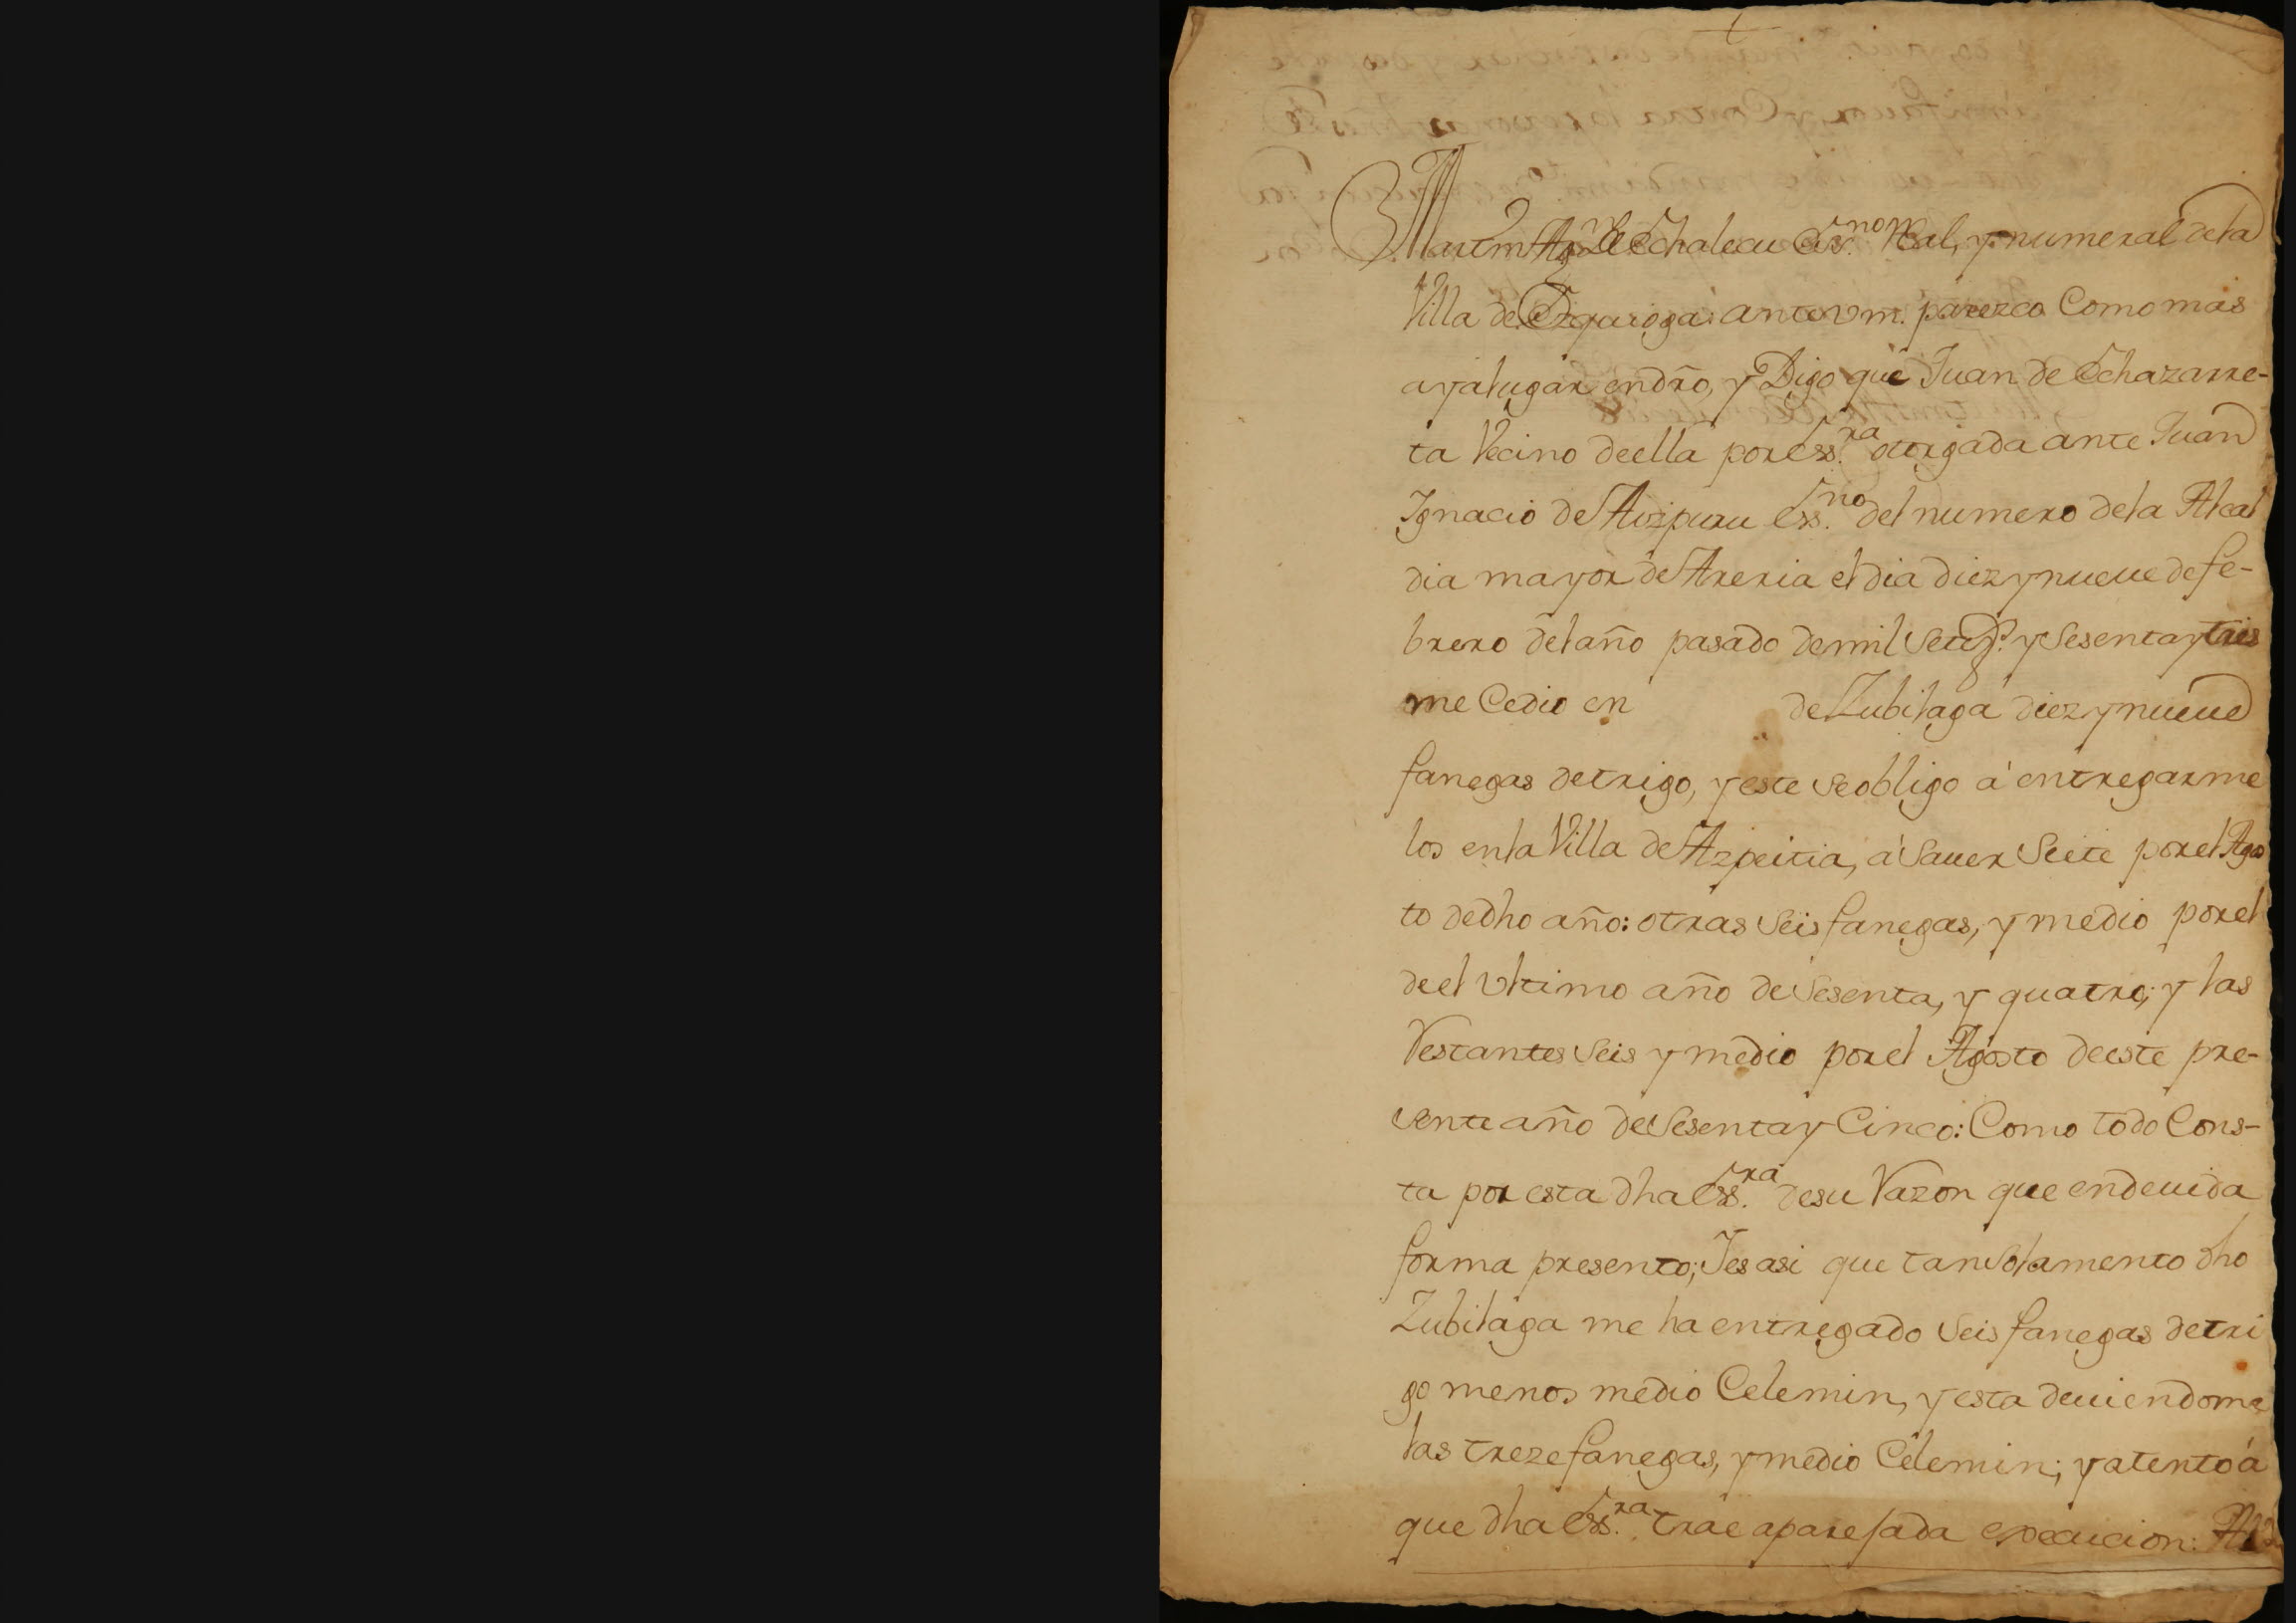 +
Martin Ag.n de Echalecu Ess.no Real, y numeral de la
Villa de Ezquioga: ante vm. parezco Como mas
aya lugar en dr̃o, y Digo que Juan de Echazarre-
ta Vecino de ella por Ess.ra otorgada ante Juan
Ignacio de Aizpuru Ess.no del numero de la Alcal
dia mayor de Areria el dia diez y nueue de fe-
brero del año pasado de mil Setez.s y Sesenta y tres
me Cedio en de Zubilaga diez y nueue
fanegas de trigo, y este se obligo á entregarme
los en la Villa de Azpeitia, á Sauer Siete por el Agos
to de dho año: otras Seis fanegas, y medio por el
de el vltimo año de Sesenta, y quatro; y las
Restantes Seis y medio por el Agosto de este pre-
sente año de Sesenta y Cinco: Como todo Cons-
ta por esta dha Ess.ra de su Razon que en deuida
forma presento; Y es asi que tan Solamento dho
Zubilaga me ha entregado Seis fanegas de tri
go menos medio Celemin, y esta deuiendome
las treze fanegas, y medio Celemin; y atento á
que dha Ess.ra trae aparejada execucion: